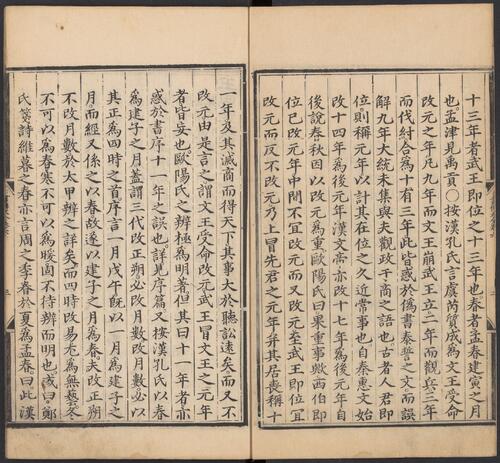 十三年者武王即位之十三年也春者孟春建寅之月
也孟津見禹貢○按漢孔氏言虞芮質成為文王受命
改元之年凡九年而文王崩武王立二年而觀兵三年
而伐紂合為十有三年此皆惑於偽書泰誓之文而誤
解九年大統未集與夫觀政于商之語也古者人君即
位則稱元年以計其在位之久近常事也自秦惠文始
改十四年為後元年漢文帝亦改十七年為後元年自
後說春秋因以改元為重歐陽氏曰果重事歟西伯即
位已改元年中間不宜改元而又改元至武王即位宜
改元而反不改元乃上冒先君之元年并其居喪稱十
一年及其滅商而得天下其事大於聽訟遠矣而又不
改元由是言之謂文王受命改元武王冒文王之元年
者皆妄也歐陽氏之辨極為明著但其曰十一年者亦
惑於書序十一年之誤也詳見序篇又按漢孔氏以春
為建子之月蓋謂三代改正朔必改月數改月數必以
其正為四時之首序言一月戊午既以一月為建子之
月而經又係之以春故遂以建子之月為春夫改正朔
不改月數於太甲辨之詳矣而四時改易尤為無藝冬
不可以為春寒不可以為暖固不待辨而明也或曰鄭
氏箋詩維暮之春亦言周之季春於夏為孟春曰此漢